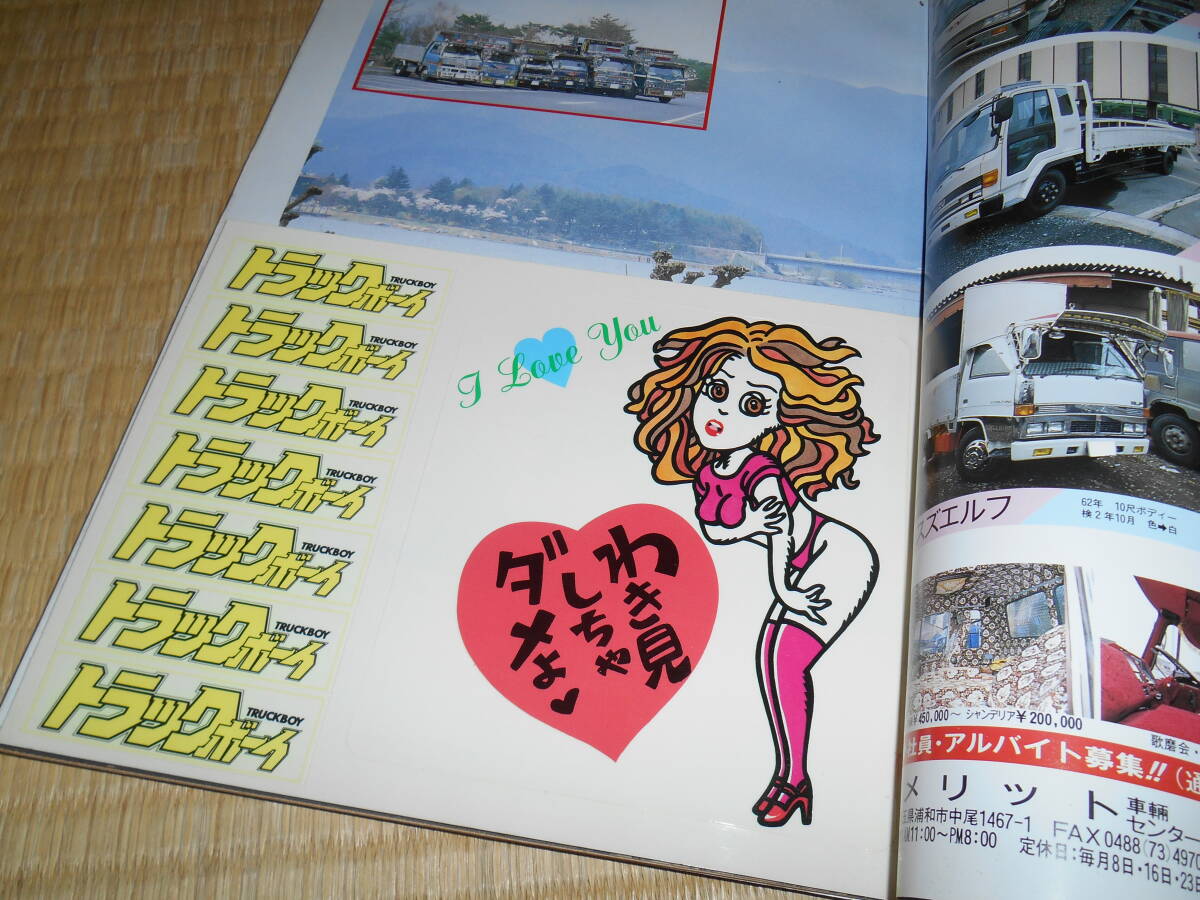 トラックボーイ TRUCKBOY
トラックボーイ TRUCKBOY
トラックボーイ TRUCKBOY
トラックボーイ TRUCKBOY
トラックボーイ TRUCKBOY
トラックボーイ TRUCKBOY
トラックボーイ TRUCKBOY
I Love You
わき見
しちゃ
ダメよ♥
スズエルフ
62年 10尺ボディー
検2年10月 色➡白
¥450,000〜 シャンデリア¥200,000
歌磨会・
社員・アルバイト募集!!(通
メリット車輌
センター
県浦和市中尾1467-1 FAX0488(73)4970
AM11:00〜PM8:00 定休日:毎月8日・16日・23日